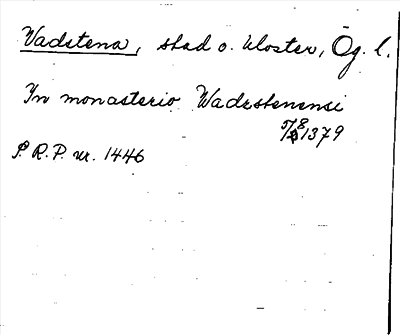 Vadstena, stad o. kloster, Ög. l.
In monasterio Wadzstenensi
5/8 1379
S.R.P. nr. 1446